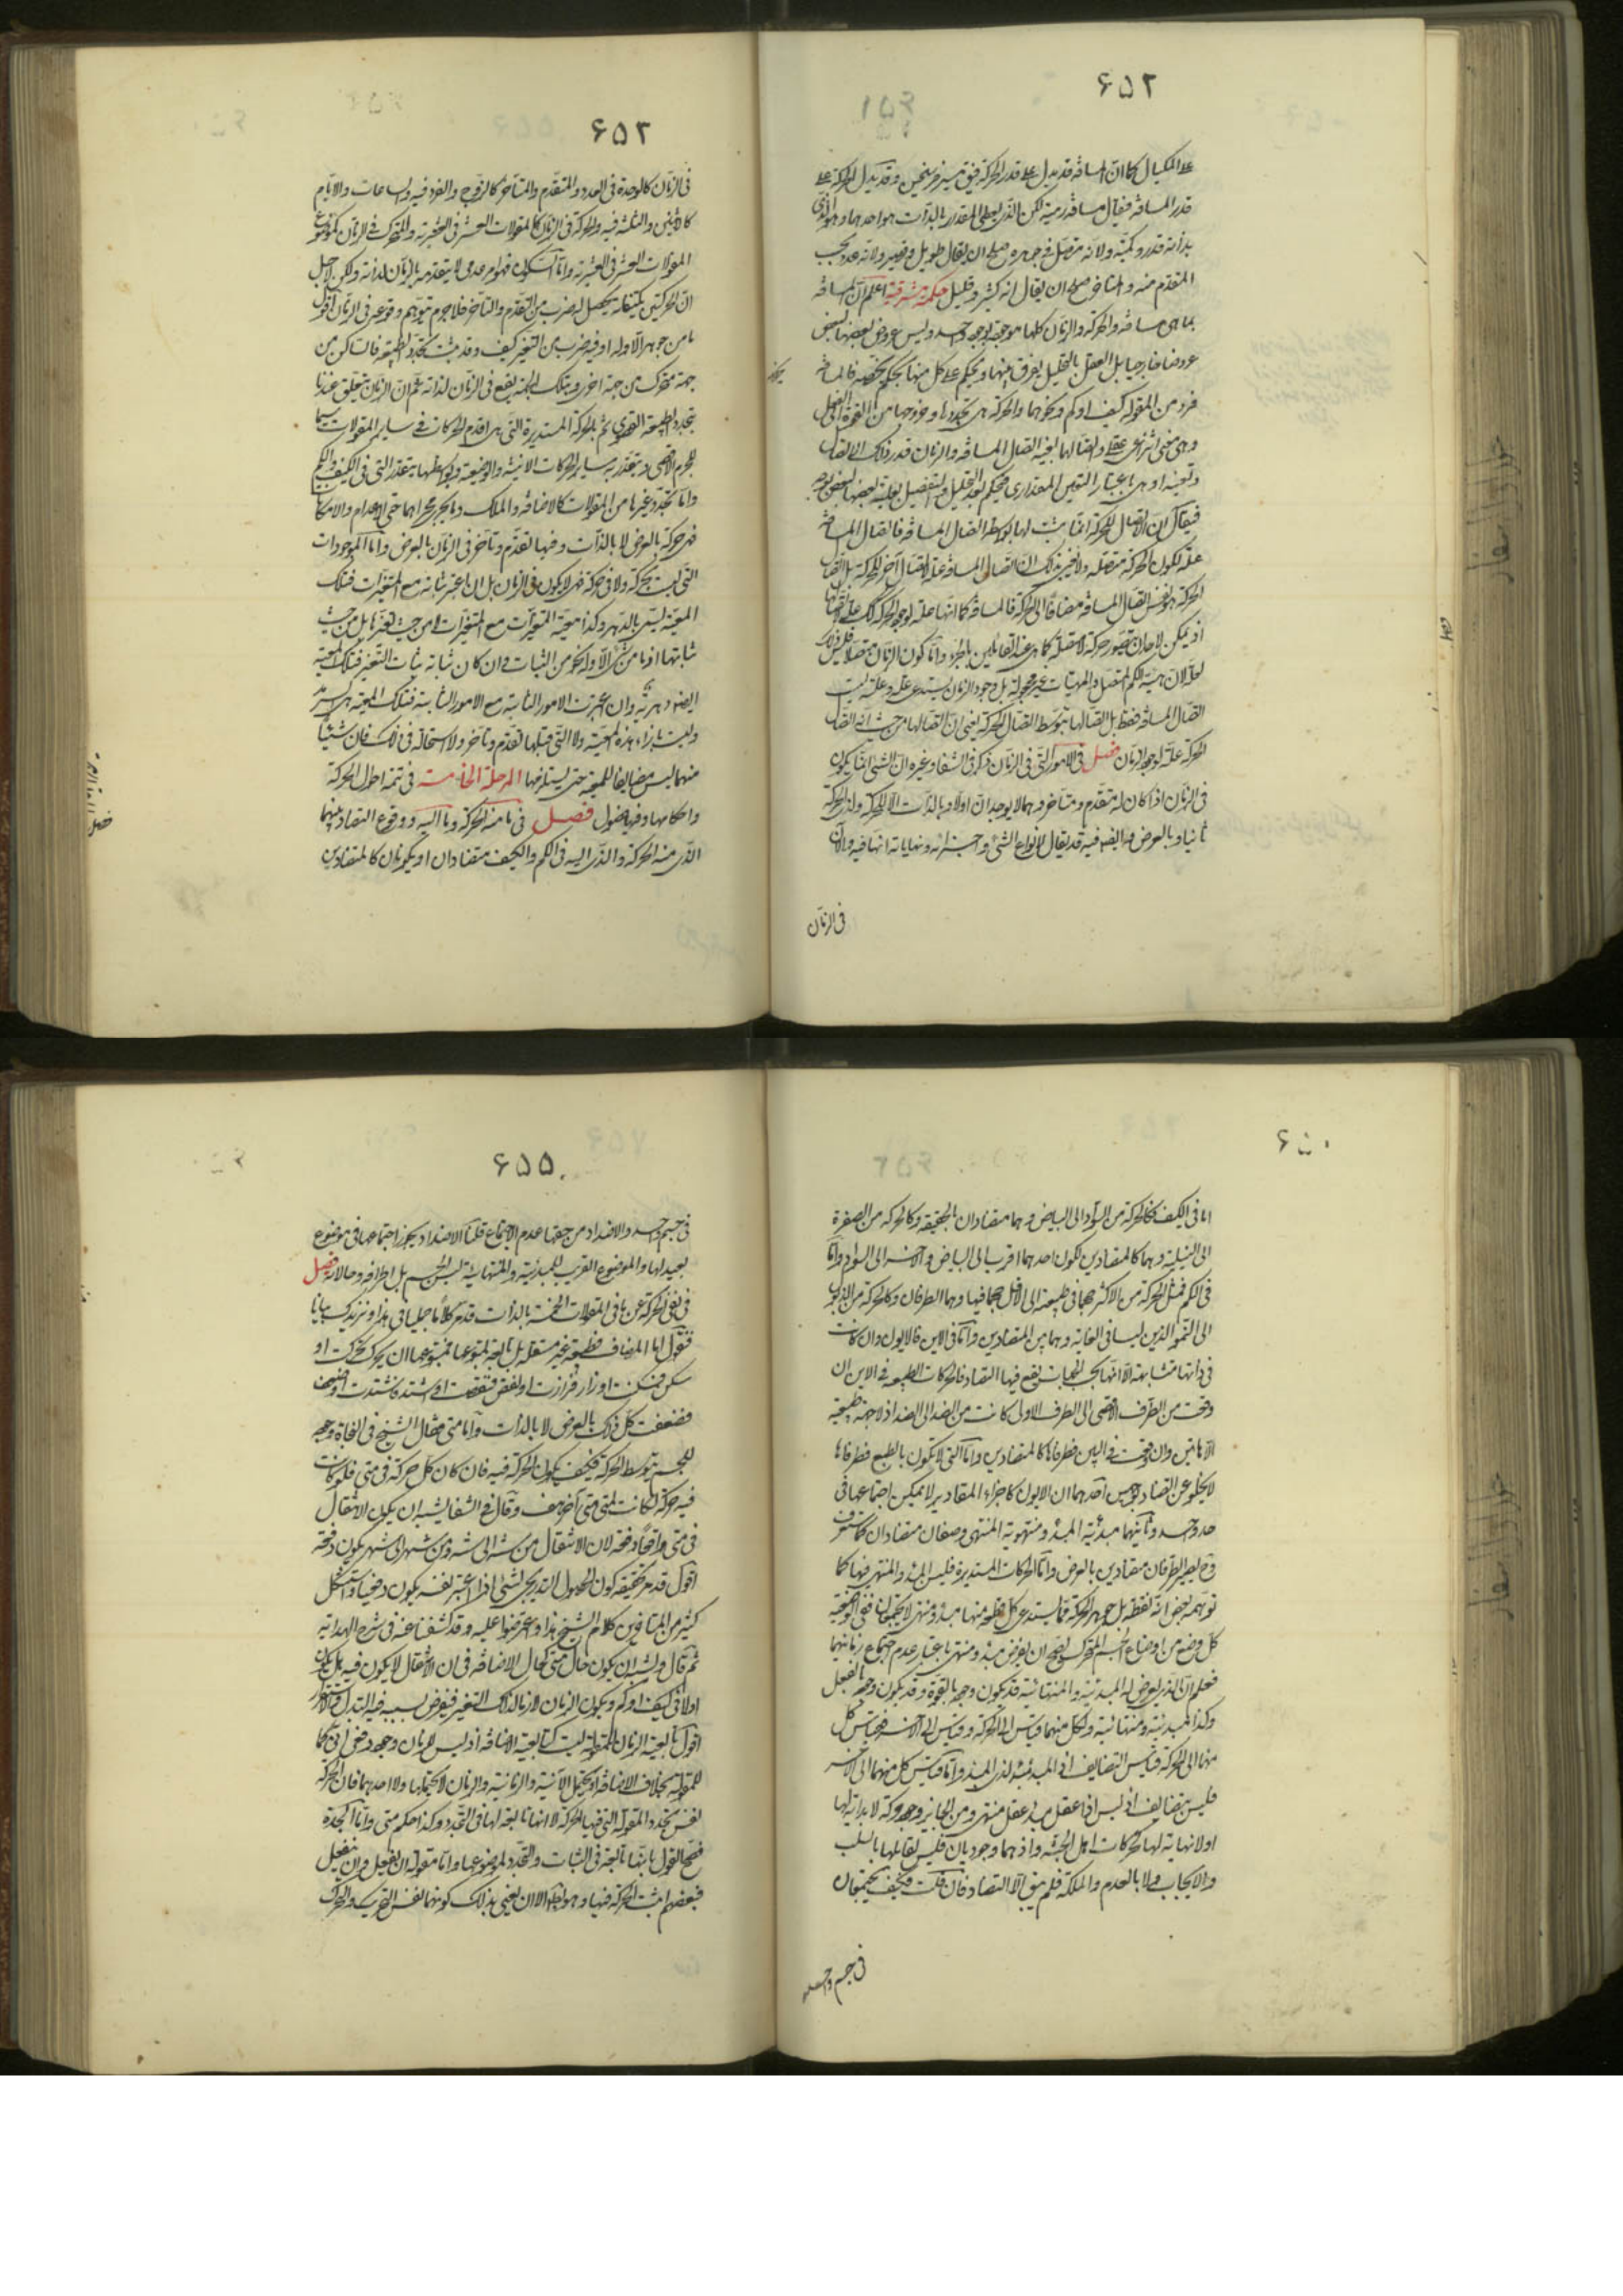 ۶۵۲
على المكيال كما ان المسافة قد يدل على قدر الحركة فيق مسير فرسخين وقد يدل الحركة على
قدر المسافة فيقال مسافة رمية لكن الذي يعطى المقدار بالذات هو احدهما وهو الذي
بذاته قدر وكمية ولانه متصل في جوهره صلح ان يقال طويل وقصير ولانه عدد بحسب
المتقدم منه والمتاخر صلح ان يقال انه كثير وقليل حكمة مشرقية اعلم ان المسافة
بما هي مسافة والحركة والزمان كلها موجودة بوجود واحد وليس عروض بعضها لبعض
عروضا خارجيا بل العقل بالتحليل يفرق بينها ويحكم على كل منها بحكم يخصه فالمسافة
فرد من المقولة كيف او كم او نحوهما والحركة هي تجددها وخروجها من القوة الى الفعل
وهي معنى انتزاعي عقلي واتصالها بعينه اتصال المسافة والزمان قدر ذلك الاتصال
وتعينه او هي باعتبار التعين المقداري فيحكم بعد التحليل والتفصيل بعلية بعضها لبعض بوجه
فيقال ان الاتصال للحركة انما يثبت لها بواسطة اتصال المسافة فاتصال المسافة
علة لكون الحركة متصلة ولا نعني بذلك ان اتصال المسافة علة لاتصال آخر للحركة بل اتصال
الحركة هو نفس اتصال المسافة مضافا الى الحركة فالمسافة كما انها علة لوجود الحركة كك علة لاتصالها
اذ يمكن لاحد ان يتصور حركة لا متصلة كما هي عند القائلين بالجزء واما كون الزمان متصلا فليس ذلك
لعلة لان مهية الكم المتصل والمهيات غير مجعولة بل وجود الزمان يستدعي علة وعلة ليست
اتصال المسافة فقط بل اتصالها بتوسط اتصال الحركة يعني ان اتصالها من حيث انه اتصال
الحركة علة لوجود الزمان فصل في الامور التي في الزمان ذكر في الشفا وغيره ان الشئ انما يكون
في الزمان اذا كان له متقدم ومتاخر وهما لا يوجدان اولا وبالذات الا للحركة ولذي الحركة
ثانيا وبالعرض وايضه فيه قد يقال لانواع الشئ واجزائه ونهاياته انها فيه والآن
في الزمان
۶۵۳
في الزمان كالوحدة في العدد والمتقدم والمتاخر كالزوج والفرد فيه والساعات والايام
كالاثنين والثلثة فيه والحركة في الزمان كالمقولات العشر في العشرية والمتحرك في الزمان كموضوع
المقولات العشر في العشرية واما السكون فهو امر عدمي لا يتقدر به بالزمان لذاته ولكن لاجل
ان الحركتين يكتنفانه يحصل له ضرب من التقدم والتاخر فلا جرم يتوهم وقوعه في الزمان اقول
ما من جوهر الا وله او فيه ضرب من التغير كيف وقد مثبت تجدد الطبيعة فالساكن من
جهة متحرك من جهة اخرى وبتلك الجهة يقع في الزمان لذاته ثم ان الزمان يتعلق عندنا
بتجدد الطبيعة القصوى ثم بالحركة المستديرة التي هي اقدم الحركات في ساير المقولات سيما
للجرم الاقصى ويتقدر به ساير الحركات الاينية والوضعية وبواسطتها يتقدر التي في الكيف والكم
واما تجدد غيرها من المقولات كالاضافة والملك وما يجري مجراهما حتى الاعدام والامكانات
فهي حركة بالعرض لا بالذات وفيها تقدم وتاخر في الزمان بالعرض واما الموجودات
التي ليست بحركة ولا في حركة فهي لا يكون في الزمان بل ان اعتبر ثباته مع المتغيرات فتلك
المعية ليسمى بالدهر وكذا معية المتغيرات مع المتغيرات لا من حيث تغيرها بل من حيث
ثباتها اذ ما من شئ الا وله نحو من الثبات وان كان ثباته ثبات التغير فتلك المعية
ايضه دهرية وان اعتبرت الامور الثابتة مع الامور الثابتة فتلك المعية هي السرمد
وليست بازاء هذه المعية ولا التي قبلها تقدم وتاخر ولا استحالة في ذلك فان شيئا
منهما ليس مضايفا للمعية حتى يستلزمها المرحلة الخامسة في تتمة احوال الحركة
واحكامها وفيها فصول فصل في ما منه الحركة وما اليه ووقوع التضاد بينهما
الذي منه الحركة والذي اليه في الكم والكيف متضادان او يكونان كالمتضادين
۶۵
اما في الكيف فكالحركة من السواد الى البياض وهما متضادان بالحقيقة وكالحركة من الصفرة
الى النيلية وهما كالمتضادين لكون احدهما اقرب الى البياض والآخر الى السواد واما
في الكم فمثل الحركة من الاكثر حجما في طبيعته الى الاقل حجما فيها وهما الطرفان وكالحركة من الذبول
الى النمو الذين ليسا في الغاية وهما بين المتضادين واما في الاين فالايون وان كانت
في ذاتها متشابهة الا انها بحسب الجهات يقع فيها التضاد فالحركات الطبيعية في الاين ان
وقعت من الطرف الاقصى الى الطرف الاول كانت من الضد الى الضد اذ لا جهة طبيعية
الا هاتين وان وقعت في البين فطرفاها كالمتضادين واما التي لا يكون بالطبع فطرفاها
لا يخلو عن التضاد بوجهين احدهما ان الايون كاجزاء المقادير لا يمكن اجتماعها في
حد واحد وثانيهما مبدئية المبدء ومنتهوية المنتهى وصفان متضادان كما ستعرف
وح يصير الطرفان متضادين بالعرض واما الحركات المستديرة فليس المبدء والمنتهى فيها كما
توهمه بعض انه نقطة بل جوهر الحركة مما يستدعي كل قطعة منها مبدء ومنتهى لا يجتمعان ففي الوضعية
كل وضع من اوضاع الجسم المتحرك يصلح ان يفرض مبدء ومنتهى باعتبار عدم اجتماع زمانيهما
فعلم ان الذي يعرض له المبدئية والمنتهائية قد يكون وجوده بالقوة وقد يكون وجوده بالفعل
وكذا المبدئية ومنتهائية ولكل منهما قياس الى الحركة وقياس الى الآخر فقياس كل
منهما الى الحركة قياس التضايف اذ المبدء مبدء لذي المبدء واما قياس كل منهما الى الآخر
فليس بتضايف اذ ليس اذا عقل مبدء عقل منتهى ومن الجايز وجود حركة لا بداية لها
او لا نهاية لها كحركات اهل الجنة واذ هما وجوديان فليس تقابلهما بالسلب
والايجاب ولا بالعدم والملكة فلم يبق الا التضاد فان قلت فكيف يجتمعان
في جسم واحد
۶۵۵
في جسم واحد والاضداد من حقها عدم الاجتماع قلنا الاضداد يجوز اجتماعها في موضوع
بعيد لها والموضوع القريب للمبدئية والمنتهائية ليس الجسم بل اطرافه وحالاته فصل
في نفي الحركة عن باقي المقولات الخمسة بالذات قد مر كلاما جمليا في هذا ونزيدك بيانا
فنقول اما المضاف فطبيعته غير مستقلة بل تابعة لمتبوعها فمتبوعها ان تحرك تحركت او
سكن فسكنت او زاد فزادت او نقص فنقصت او اشتد فاشتدت او ضعف
فضعفت كل ذلك بالعرض لا بالذات واما متى فقال الشيخ في النجاة وجوده
للجسم بتوسط الحركة فكيف يكون الحركة فيه فان كان كل حركة في متى فلو كانت
فيه حركة لكانت لمتى متى آخر هف وقال في الشفا يشبه ان يكون الانتقال
في متى واقعا دفعة لان الانتقال من سنة الى سنة ومن شهر الى شهر يكون دفعة
اقول قد مر تحقيقه كون الحصول التدريجي لشئ اذا اعتبر نفسه يكون دفعيا واستشكل
كثير من المتاخرين كلام الشيخ هذا واعترضوا عليه وقد كشفنا عنه في شرح الهداية
ثم قال ويشبه ان يكون حال متى كحال الاضافة في ان الانتقال لا يكون فيه بل يكون
اولا في كيف او كم ويكون الزمان لازما لذلك التغير فيعرض بسببه فيه التبدل والاستقرار
اقول تابعية الزمان للمقولة ليست كتابعية الاضافة اذ ليس للزمان وجود دفعي آني كما
للمقولة بخلاف الاضافة اذ يحتمل الآنية والزمانية والزمان لا يحتملها ولا احدهما فان الحركة
نفس تجدد المقولة التي فيها الحركة لا انها تابعة لها في التجدد وكذا حكم متى واما الجدة
فصح القول بانها تابعة في الثبات والتجدد لموضوعها واما مقولة ان يفعل وان ينفعل
فبعضهم اثبت الحركة فيها وهو باطل الا ان يعنى بذلك كونهما نفس التحريك والتحرك